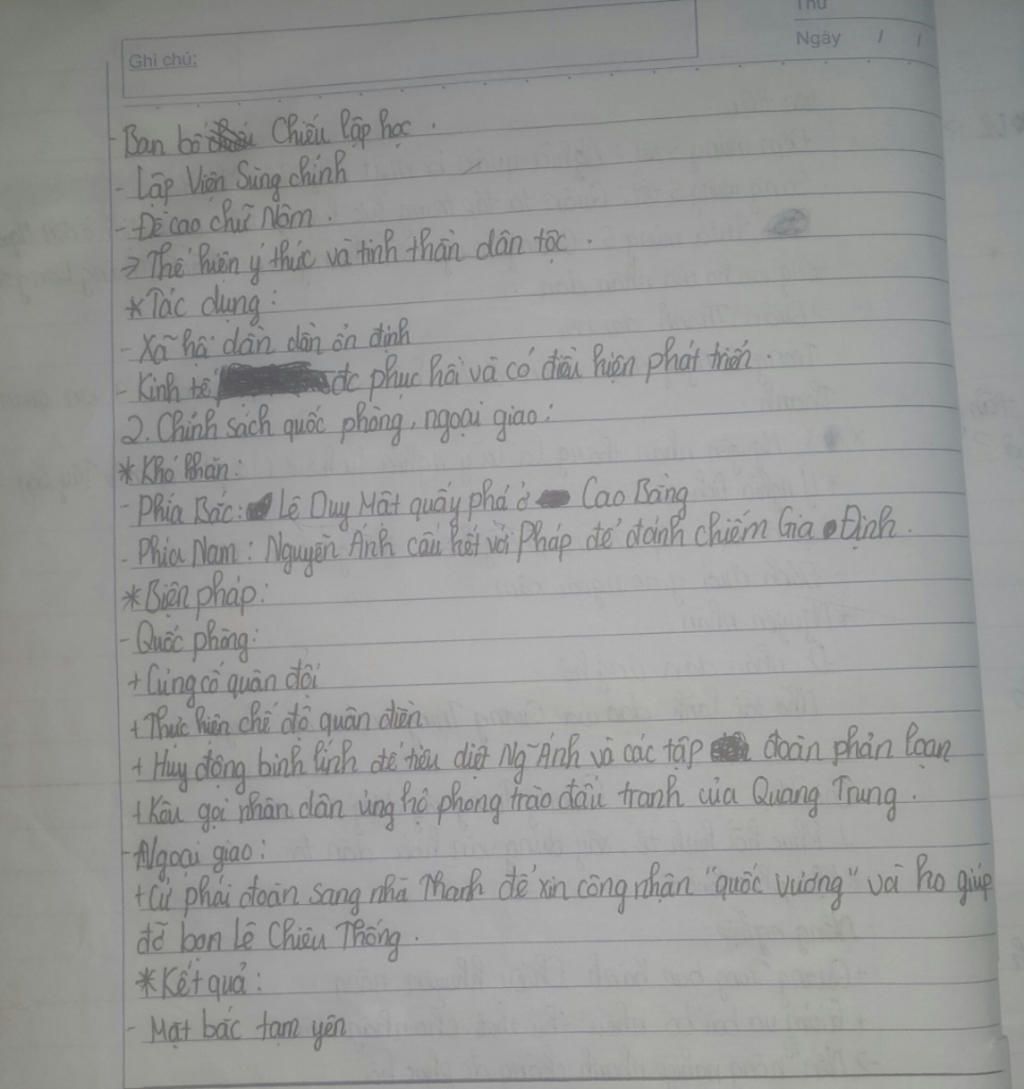 Thứ
Ghi chú:
Ngày / /
- Ban bố Chiếu lập học.
- Lập Viện Sùng chính
- Đề cao chữ Nôm.
=> Thể hiện ý thức và tinh thần dân tộc.
* Tác dụng:
- Xã hội dần dần ổn định
- Kinh tế đc phục hồi và có điều kiện phát triển.
2. Chính sách quốc phòng, ngoại giao:
* Khó khăn:
- Phía Bắc: Lê Duy Mật quấy phá ở Cao Bằng
- Phía Nam: Nguyễn Ánh cấu kết với Pháp để đánh chiếm Gia Định.
* Biện pháp:
- Quốc phòng:
+ Củng cố quân đội
+ Thực hiện chế độ quân điền
+ Huy động binh lính để tiêu diệt Ng~ Ánh và các tập đoàn phản loạn
+ Kêu gọi nhân dân ủng hộ phong trào đấu tranh của Quang Trung.
- Ngoại giao:
+ Cử phái đoàn sang nhà Thanh để xin công nhận "quốc vương" và ko giúp
đỡ bọn Lê Chiêu Thống.
* Kết quả:
- Mặt bắc tạm yên